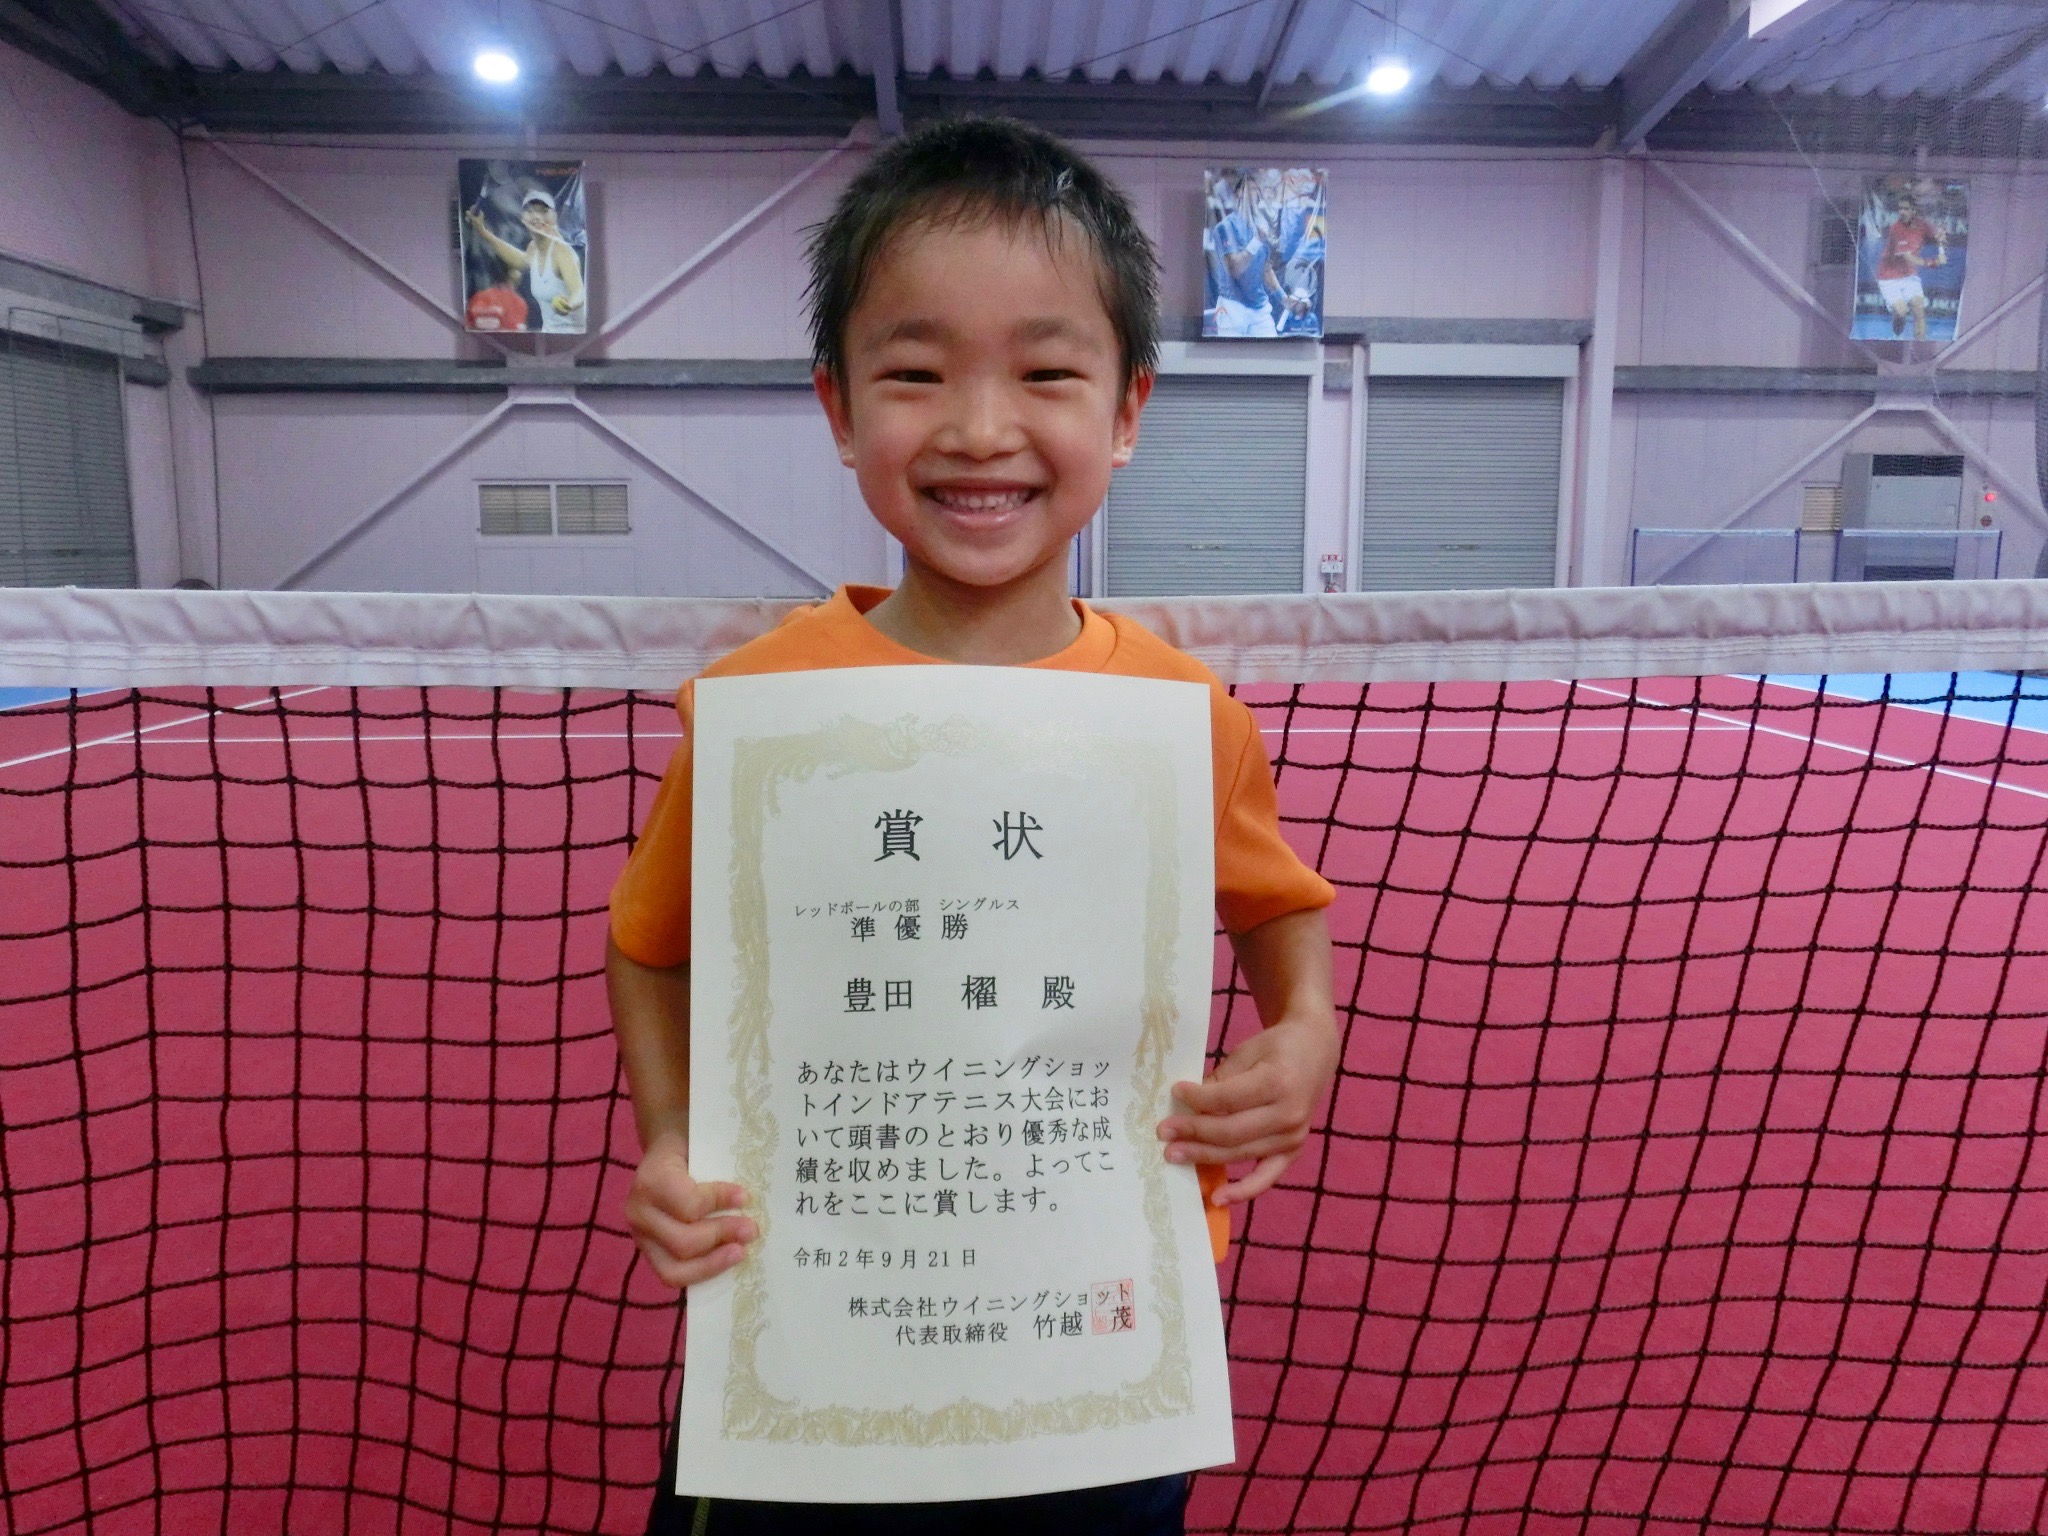 賞状
レッドボールの部 シングルス
準優勝
豊田 櫂 殿
あなたはウイニングショッ
トインドアテニス大会にお
いて頭書のとおり優秀な成
績を収めました。よってこ
れをここに賞します。
令和2年9月21日
株式会社ウイニングショット
代表取締役 竹越 茂